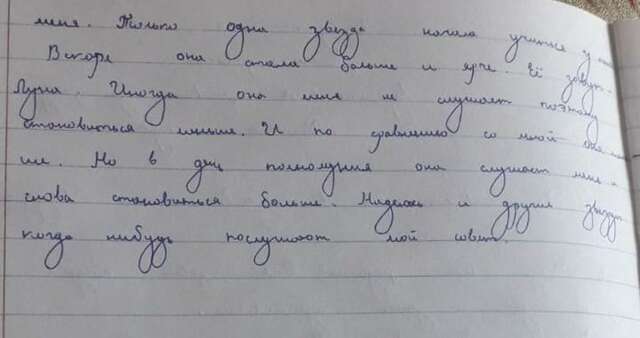 меня. Только одна звезда начала учиться у
Вскоре она стала больше и ярче. Её зовут
Луна. Иногда она меня не слушает поэтому
становиться меньше. И по сравнению со мной она
ше. Но в день полнолуния она слушает меня и
снова становиться больше. Надеюсь и другие звезды
когда нибудь послушают мой совет.